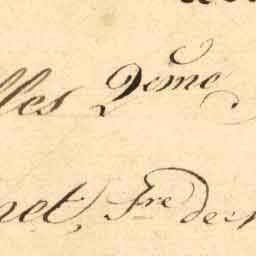 lles 2eme
net, fre de